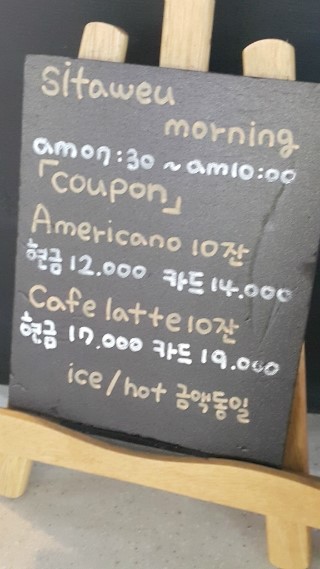 sitaweu
morning
am07:30 ~ am10:00
「coupon」
Americano 10잔
현금 12.000 카드 14.000
Cafe latte 10잔
현금 17.000 카드 19.000
ice/hot 금액동일